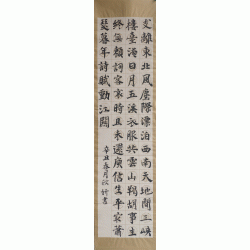 支離東北風塵際漂泊西南天地間三峽
樓臺淹日月五溪衣服共雲山羯胡事主
終無賴詞客哀時且未還庾信生平最蕭
瑟暮年詩賦動江關
辛丑春月書